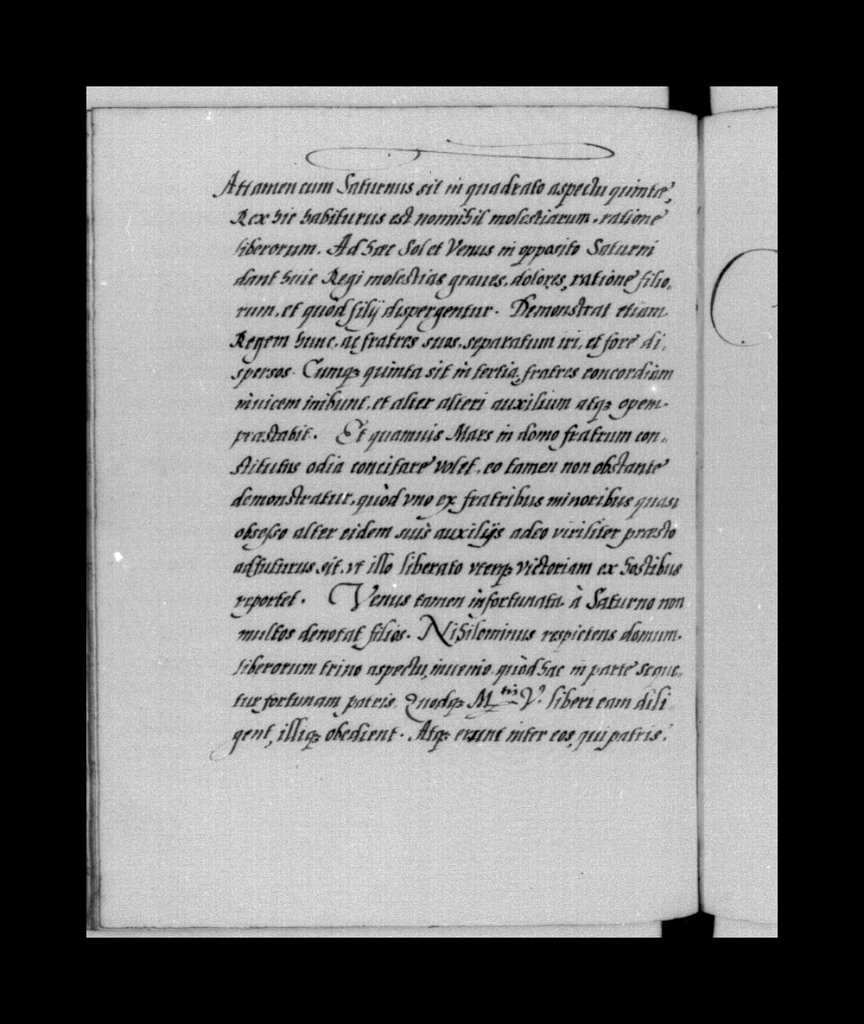 Attamen cum Saturnus sit in quadrato aspectu quintæ,
Rex hic habiturus est nonnihil molestiarum, ratione
liberorum. Ad hæc Sol et Venus in opposito Saturni
dant huic Regi molestias graues, dolores, ratione filio-
rum, et quòd filij dispergentur. Demonstrat etiam
Regem hunc, ac fratres suos, separatum iri, et fore di-
spersos. Cumq; quinta sit in tertia, fratres concordiam
inuicem inibunt, et alter alteri auxilium atq; opem
præstabit. Et quamuis Mars in domo fratrum con-
stitutus odia concitare volet, eo tamen non obstante
demonstratur, quòd vno ex fratribus minoribus quasi
obsesso alter eidem suis auxilijs adeo viriliter præsto
adfuturus sit, vt illo liberato vterq; victoriam ex hostibus
reportet. Venus tamen infortunata à Saturno non
multos denotat filios. Nihilominus respiciens domum
liberorum trino aspectu, inuenio, quòd hæc in parte seque-
tur fortunam patris. Quodq; M.tis V.ę liberi eam dili-
gent, illiq; obedient. Atq; erunt inter eos, qui patris